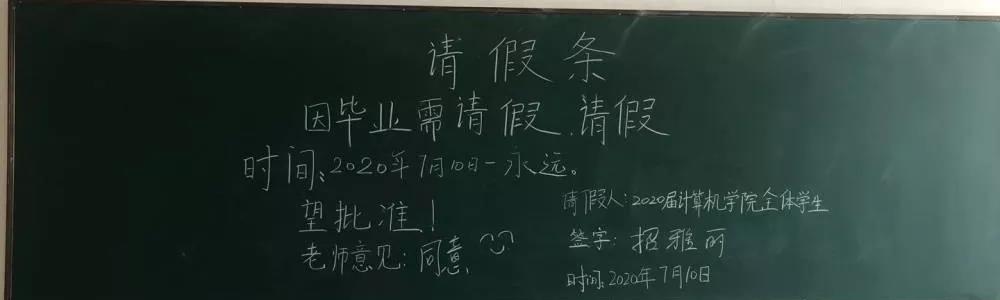 请假条
因毕业需请假、请假
时间:2020年7月10日-永远。
望批准!
老师意见:同意
请假人:2020届计算机学院全体学生
签字:招雅丽
时间:2020年7月10日